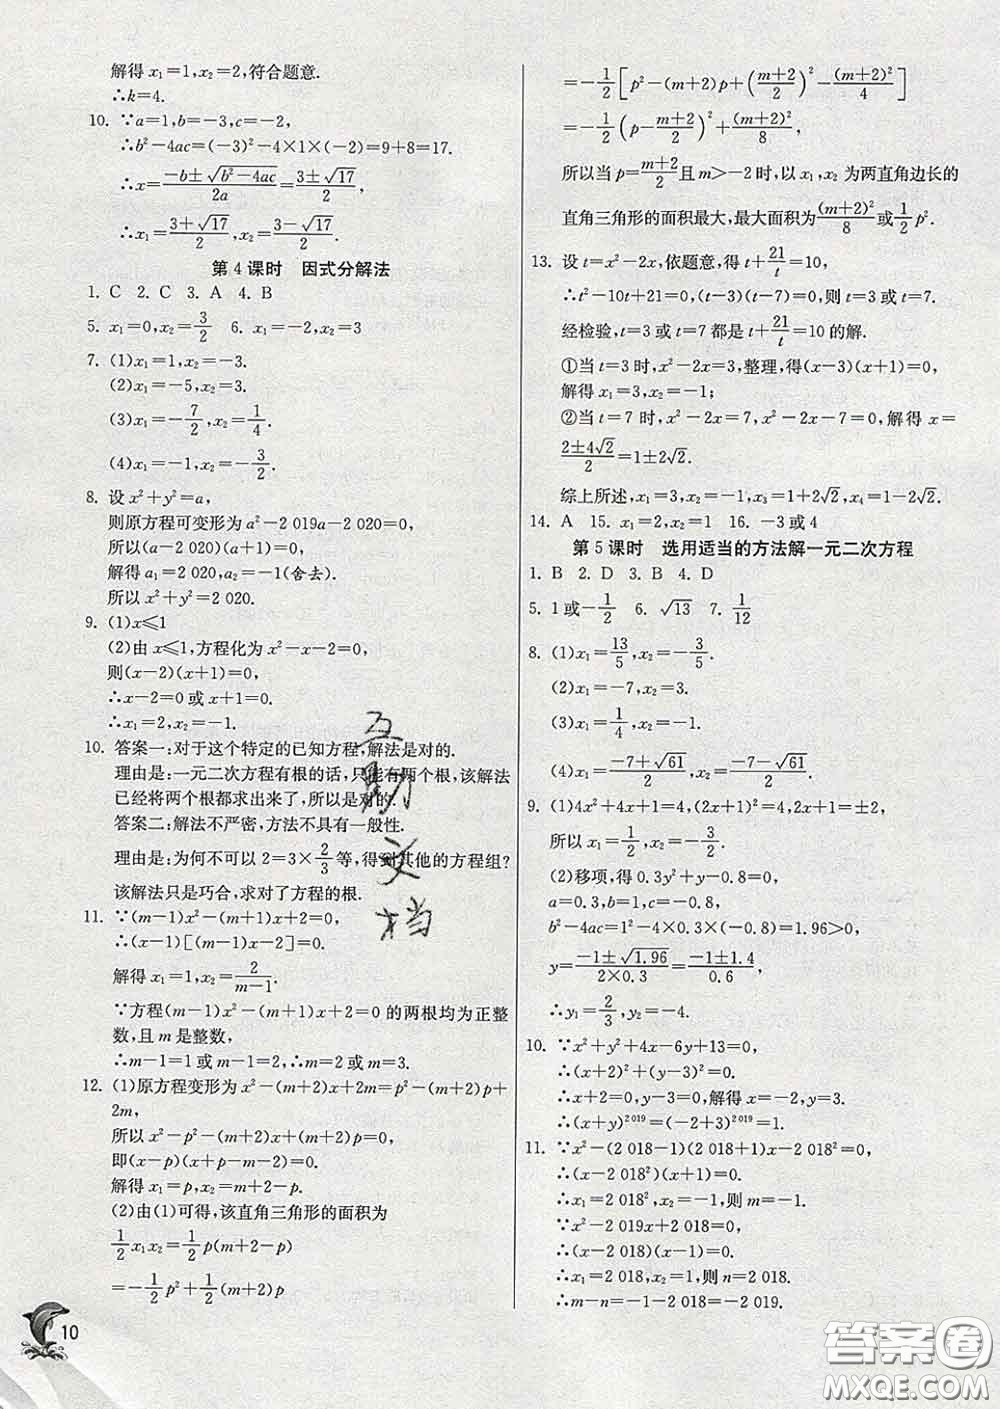 解得 x₁=1,x₂=2,符合题意.
∴k=4.
10. ∵a=1,b=-3,c=-2,
∴b²-4ac=(-3)²-4×1×(-2)=9+8=17.
∴x=(-b±√(b²-4ac))/(2a)=(3±√17)/2,
∴x₁=(3+√17)/2,x₂=(3-√17)/2.
第 4 课时 因式分解法
1. C 2. C 3. A 4. B
5. x₁=0,x₂=3/2 6. x₁=-2,x₂=3
7. (1)x₁=1,x₂=-3.
(2)x₁=-5,x₂=3.
(3)x₁=-7/2,x₂=1/4.
(4)x₁=-1,x₂=-3/2.
8. 设 x²+y²=a,
则原方程可变形为 a²-2 019a-2 020=0,
所以(a-2 020)(a+1)=0,
解得 a₁=2 020,a₂=-1(舍去).
所以 x²+y²=2 020.
9. (1)x≤1
(2)由 x≤1,方程化为 x²-x-2=0,
则(x-2)(x+1)=0,
∴x-2=0 或 x+1=0.
∴x₁=2,x₂=-1.
10. 答案一:对于这个特定的已知方程,解法是对的.
理由是:一元二次方程有根的话,只能有两个根,该解法
已经将两个根都求出来了,所以是对的.
答案二:解法不严密,方法不具有一般性.
理由是:为何不可以 2=3×2/3 等,得到其他的方程组?
该解法只是巧合,求对了方程的根.
11. ∵(m-1)x²-(m+1)x+2=0,
∴(x-1)[(m-1)x-2]=0.
解得 x₁=1,x₂=2/(m-1).
∵方程(m-1)x²-(m+1)x+2=0 的两根均为正整
数,且 m 是整数,
∴m-1=1 或 m-1=2,∴m=2 或 m=3.
12. (1)原方程变形为 x²-(m+2)x+2m=p²-(m+2)p+
2m,
所以 x²-p²-(m+2)x+(m+2)p=0,
即(x-p)(x+p-m-2)=0.
解得 x₁=p,x₂=m+2-p.
(2)由(1)可得,该直角三角形的面积为
1/2 x₁x₂=1/2 p(m+2-p)
=-1/2 p²+1/2 (m+2)p
=-1/2[p²-(m+2)p+((m+2)/2)²-(m+2)²/4]
=-1/2(p-(m+2)/2)²+(m+2)²/8,
所以当 p=(m+2)/2且 m>-2 时,以 x₁,x₂ 为两直角边长的
直角三角形的面积最大,最大面积为(m+2)²/8或1/2 p².
13. 设 t=x²-2x,依题意,得 t+21/t=10,
∴t²-10t+21=0,(t-3)(t-7)=0,则 t=3 或 t=7.
经检验,t=3 或 t=7 都是 t+21/t=10 的解.
①当 t=3 时,x²-2x=3,整理,得(x-3)(x+1)=0,
解得 x₁=3,x₂=-1;
②当 t=7 时,x²-2x=7,x²-2x-7=0,解得 x=
(2±4√2)/2=1±2√2.
综上所述,x₁=3,x₂=-1,x₃=1+2√2,x₄=1-2√2.
14. A 15. x₁=2,x₂=1 16. -3或4
第 5 课时 选用适当的方法解一元二次方程
1. B 2. D 3. B 4. D
5. 1 或-1/2 6. √13 7. 1/12
8. (1)x₁=13/5,x₂=-3/5.
(2)x₁=-7,x₂=3.
(3)x₁=1/4,x₂=-1.
(4)x₁=(-7+√61)/2,x₂=(-7-√61)/2.
9. (1)4x²+4x+1=4,(2x+1)²=4,2x+1=±2,
所以 x₁=1/2,x₂=-3/2.
(2)移项,得 0.3y²+y-0.8=0,
a=0.3,b=1,c=-0.8,
b²-4ac=1²-4×0.3×(-0.8)=1.96>0,
y=(-1±√1.96)/(2×0.3)=(-1±1.4)/0.6,
∴y₁=2/3,y₂=-4.
10. ∵x²+y²+4x-6y+13=0,
∴(x+2)²+(y-3)²=0.
∴x+2=0,y-3=0,解得 x=-2,y=3.
∴(x+y)²⁰¹⁹=(-2+3)²⁰¹⁹=1.
11. ∵x²-(2 018-1)(2 018+1)x-2 018²=0,
∴(x-2 018²)(x+1)=0.
∴x₁=2 018²,x₂=-1,则 m=2 018².
∵x²-2 019x+2 018=0,
∴(x-2 018)(x-1)=0.
∴x₁=2 018,x₂=1,则 n=2 018.
∴m-n=-1-2 018=-2 019.
互助文档
10
答案圈
MXQE.COM